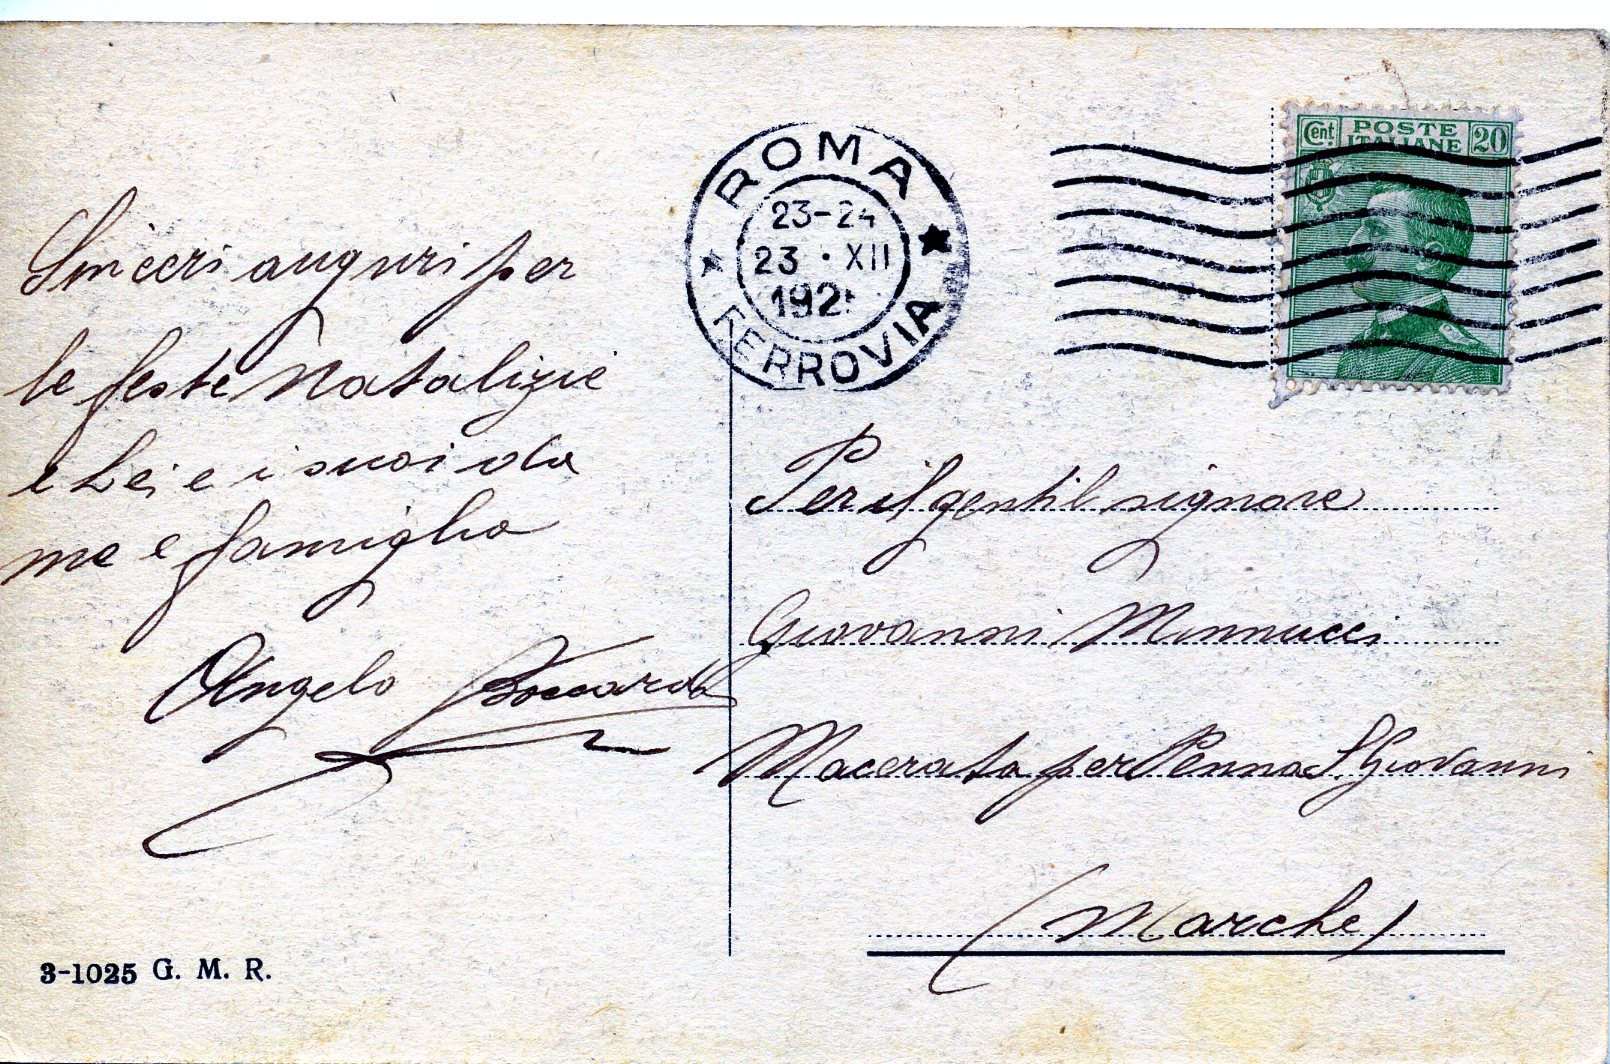 Sinceri auguri per
le feste Natalizie
e Lei e i suoi da
me e famiglia
Angelo
3-1025 G. M. R.
ROMA
23-24
23 · XII
192
FERROVIA
Cent. POSTE ITALIANE 20
Per il gentil signore
Giovanni Minnucci
Macerata per Penna S. Giovanni
(Marche)